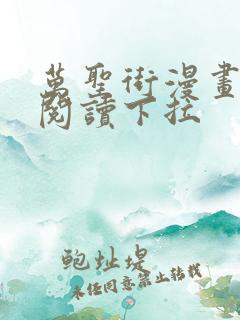 萬聖街漫畫
閱讀下拉
鮑址堤
未任同意禁止转载